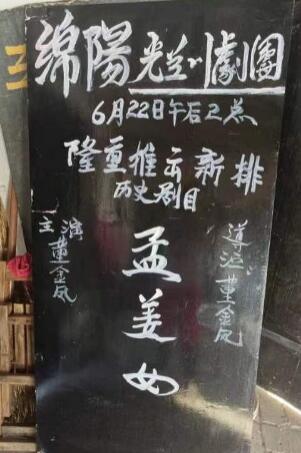 綿陽光川劇團
6月22日午后2点
隆重推出新排
历史剧目
孟姜女
導演董金凤
主演董金凤
三